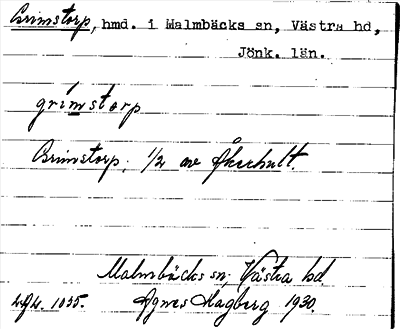 Brimstorp, hmd. i Malmbäcks sn, Västra hd,
Jönk. län.
grimstorp
Brimstorp, 1/2 av Åkerhult.
Malmbäcks sn, Västra hd.
Agnes Hagberg 1930.